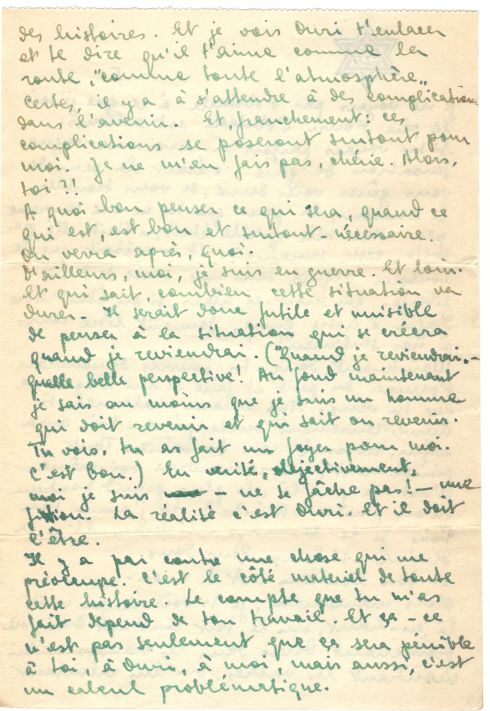 des histoires. Et je vois Ouri t'enlacer
et te dire qu'il t'aime comme la
route, "comme toute l'atmosphère".
Certes, il y a à s'attendre à des complications
dans l'avenir. Et, franchement: ces
complications se poseront surtout pour
moi. Je ne m'en fais pas, chérie. Alors,
toi?!
A quoi bon penser ce qui sera, quand ce
qui est, est bon et surtout - nécessaire.
On verra après, quoi.
D'ailleurs, moi, je suis en guerre. Et loin.
Et qui sait, combien cette situation va
durer. - Il serait donc futile et nuisible
de penser à la situation qui se créera
quand je reviendrai. ("Quand je reviendrai" -
quelle belle perspective! Au fond maintenant
je sais au moins que je suis un homme
qui doit revenir et qui sait où revenir.
Tu vois, tu as fait un foyer pour moi.
C'est bon.) En verité, objectivement,
moi je suis - ne te fâche pas! - une
fiction. La réalité c'est Ouri. Et il doit
l'être.
Il y a par contre une chose qui me
préoccupe. C'est le côté materiel de toute
cette histoire. Le compte que tu m'as
fait depend de ton travail. Et ça - ce
n'est pas seulement que ça sera pénible
à toi, à Ouri, à moi, mais aussi, c'est
un calcul problématique.